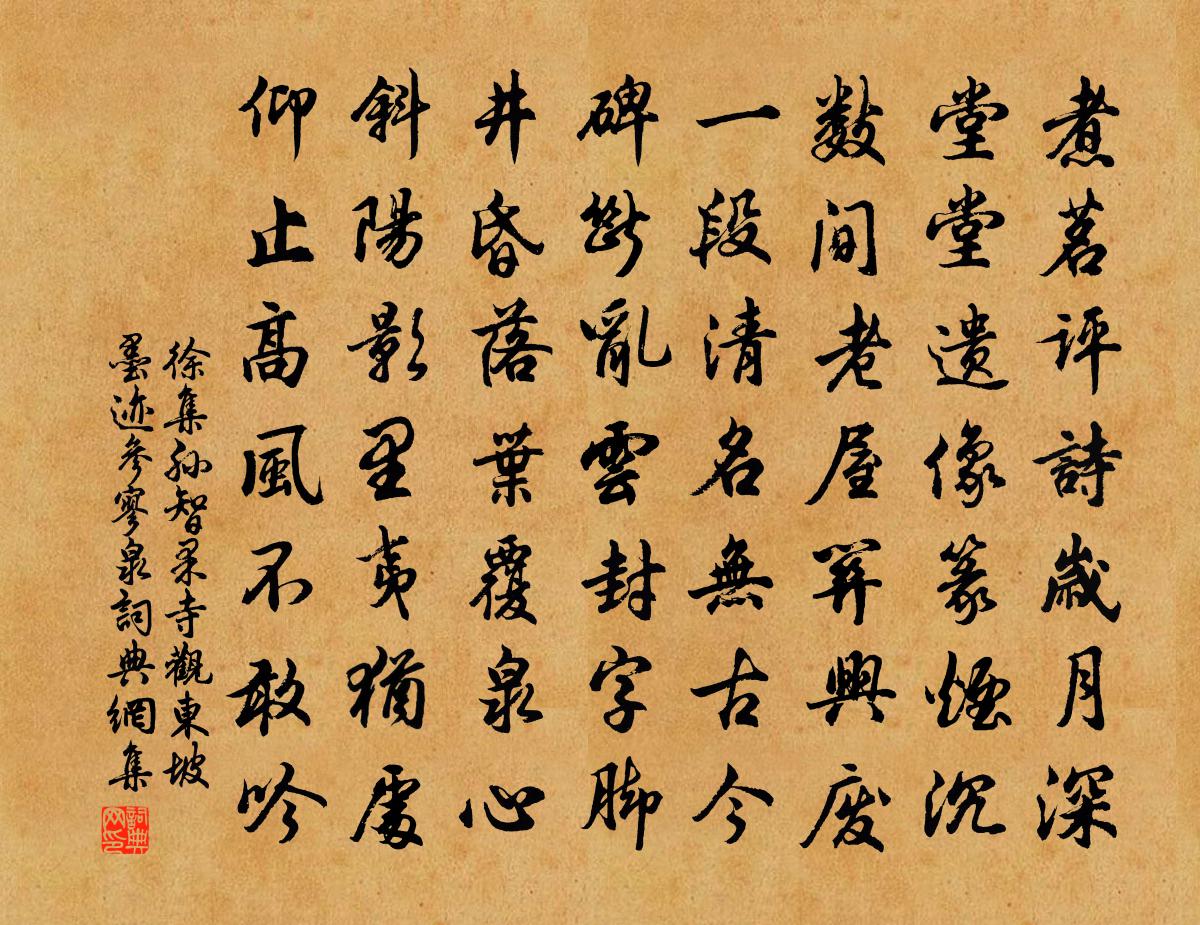 煮茗評詩歲月深
堂堂遺像篆煙沉
數間老屋關興廢
一段清名無古今
碑斷亂雲封字腳
井昏落葉覆泉心
斜陽影里夷猶處
仰止高風不敢吟
徐集孫智果寺觀東坡
墨迹參寥泉詞典網集
詞典網印